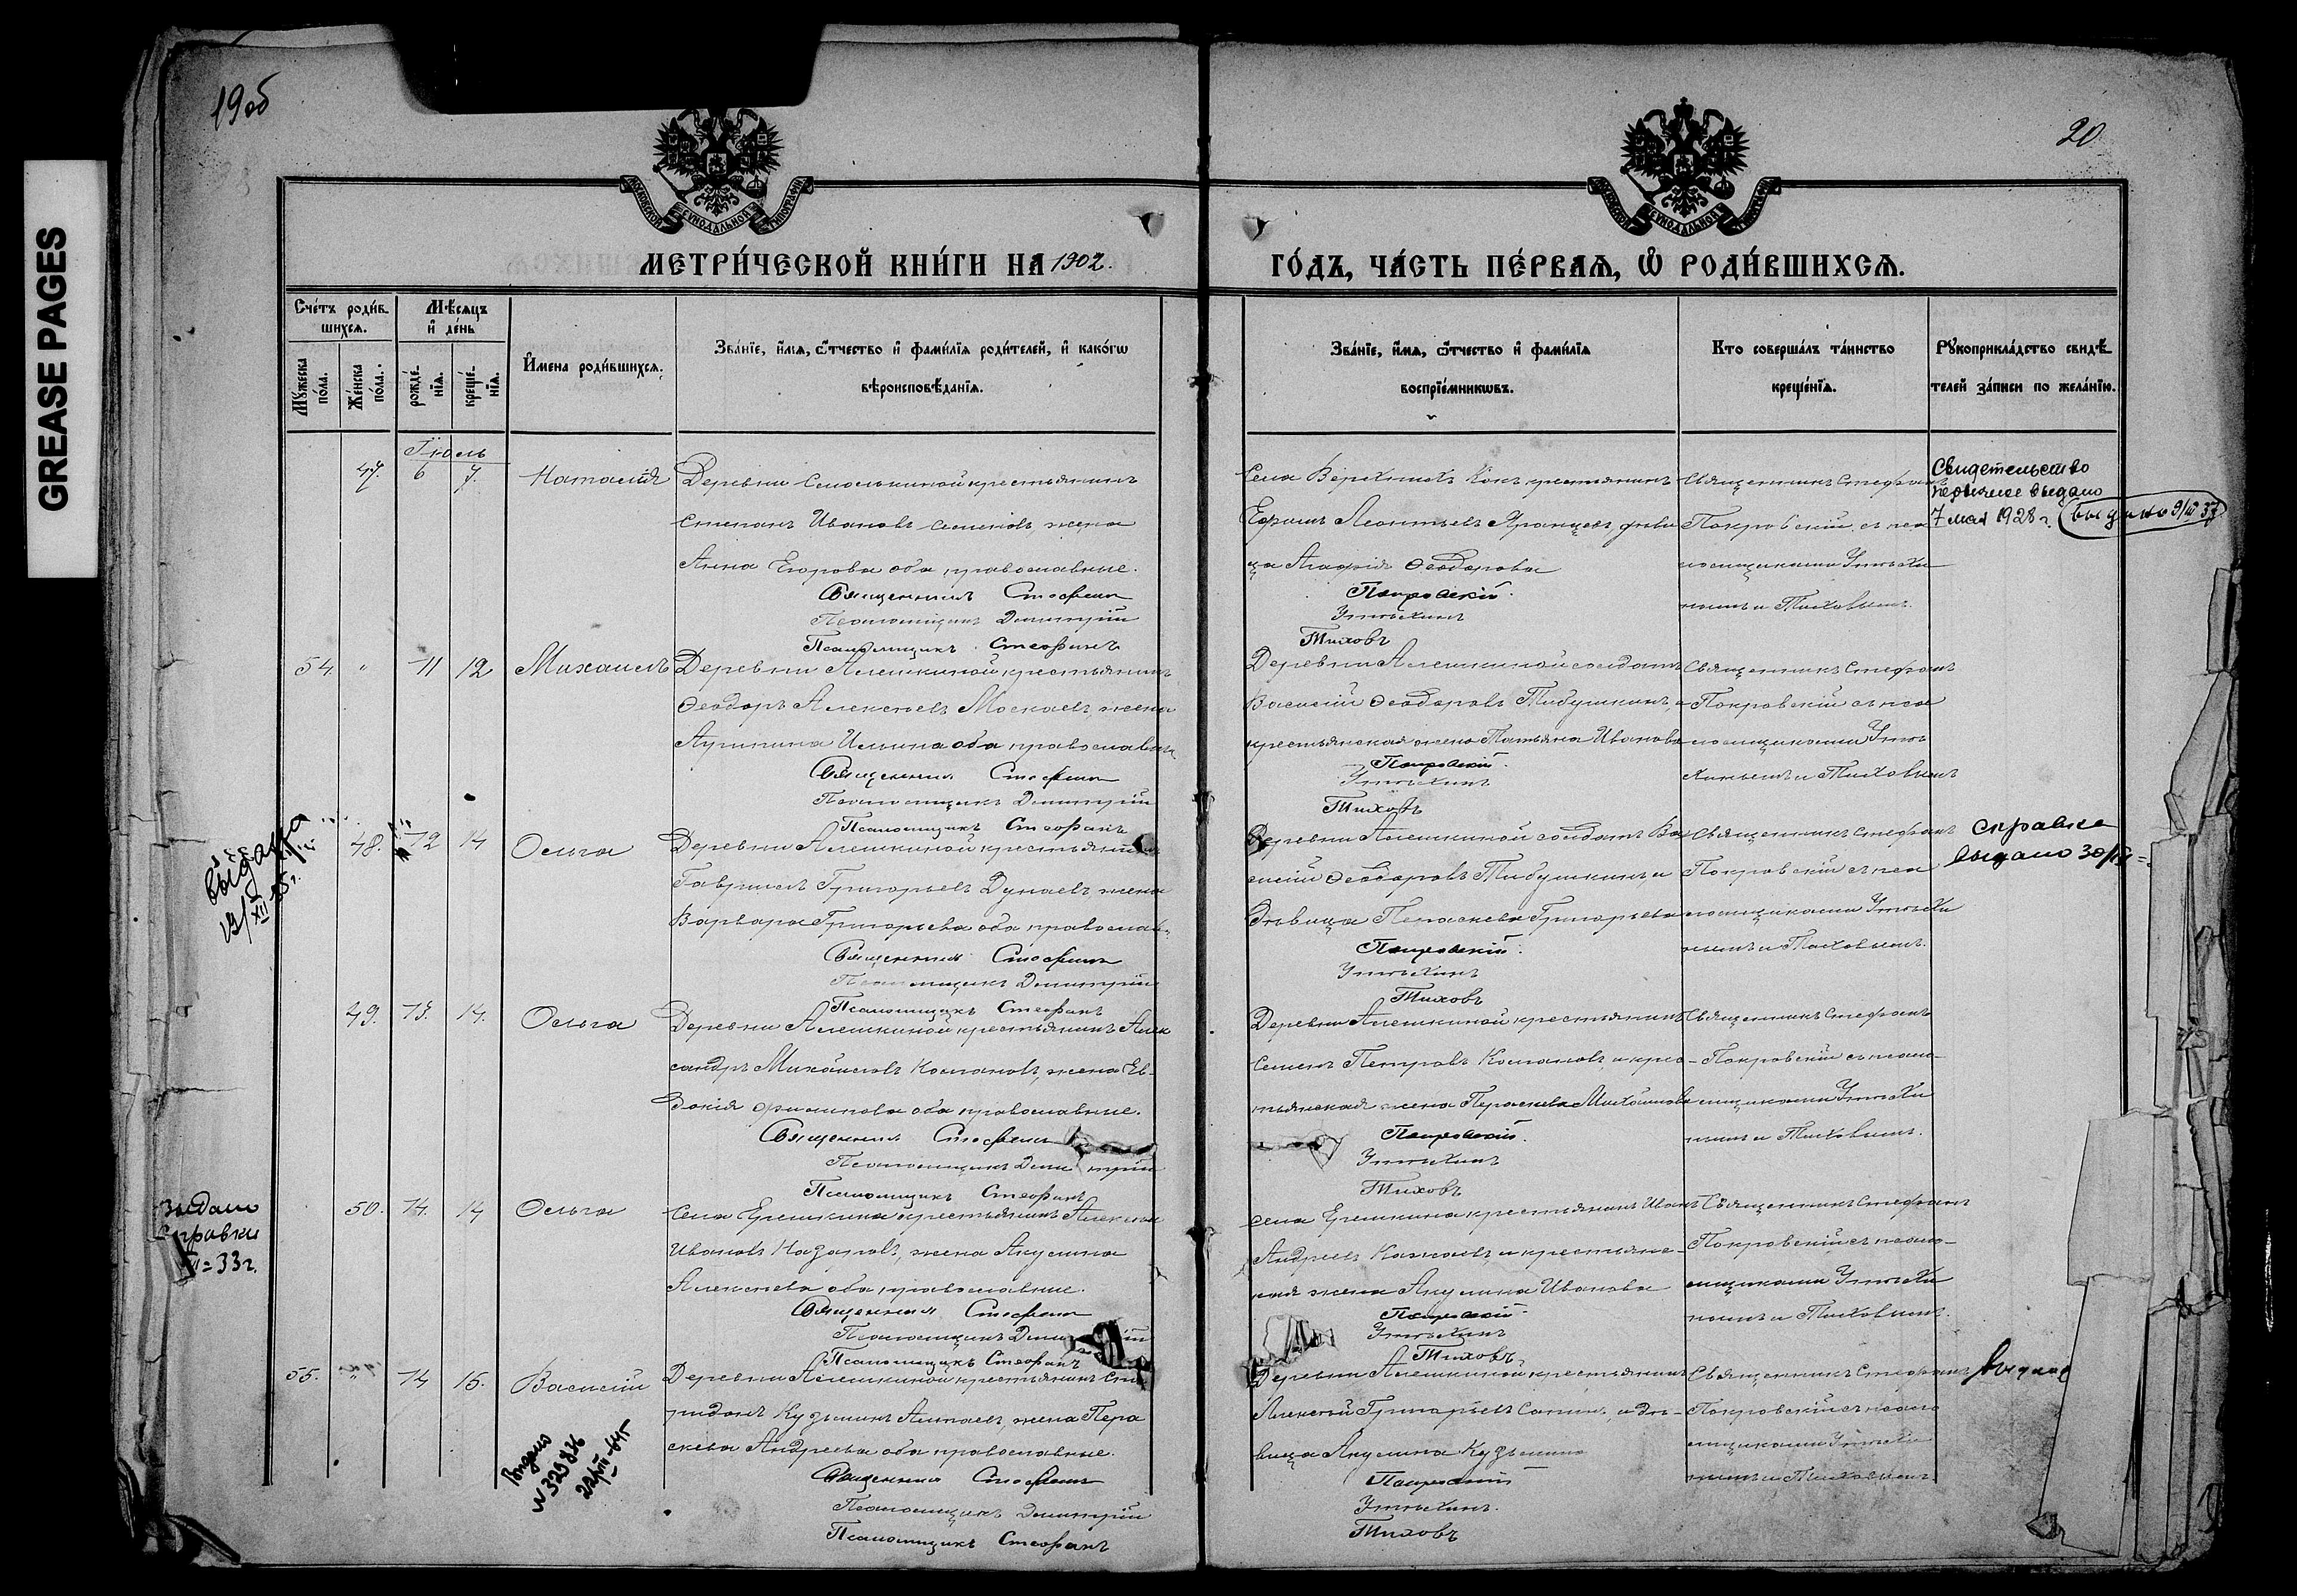 GREASE PAGES
19об
20
МОСКОВСКОЙ СѴНОДАЛЬНОЙ ТИПОГРАФІИ
МОСКОВСКОЙ СѴНОДАЛЬНОЙ ТИПОГРАФІИ
МЕТРИ́ЧЕСКОЙ КНИ́ГИ НА 1902.
ГО́ДЪ, ЧА́СТЬ ПЕ́РВАѦ, Ѡ҆ РОДИ́ВШИХСѦ.
Сче́тъ роди́в-
шихсѧ.
Мѣ́сѧцъ
и҆ де́нь
Мꙋ́жеска
по́ла.
Же́нска
по́ла.
рожде́-
нїѧ.
креще́-
нїѧ.
И҆мена роди́вшихсѧ.
Зва́нїе, и҆́мѧ, ѻ҆́тчество и҆ фами́лїѧ роди́телей, и҆ како́гѡ
вѣроисповѣ́данїѧ.
Зва́нїе, и҆́мѧ, ѻ҆́тчество и҆ фами́лїѧ
воспрїе́мникѡвъ.
Кто соверша́лъ та́инство
креще́нїѧ.
Рꙋкоприкла́дство свидѣ́-
телей за́писи по жела́нїю.
Іюль
47. 6 7. Наталія
Деревни крестьянинъ
Степанъ Ивановъ Семеновъ, жена
Анна Егорова оба православные.
Священникъ Стефанъ
Псаломщикъ Димитрій
Псаломщикъ Стефанъ
Села Верхнихъ Кокъ крестьянинъ
Ефимъ Леонтьевъ дѣви
ца Агафія Ѳеодорова
Покровскій.
Утѣхинъ
Тиховъ
Священникъ Стефанъ
Покровскій съ пса
ломщиками Утѣхи
нымъ и Тиховымъ.
Свидетельство
выдано
7 мая 1928 г.
54. " 11 12 Михаилъ
Деревни Алешкиной крестьянинъ
Ѳеодоръ Алексѣевъ Москаевъ, жена
Агрипина Ильина оба православн.
Священникъ Стефанъ
Псаломщикъ Димитрій
Псаломщикъ Стефанъ
Деревни Алешкиной солдатъ
Василій Ѳеодоровъ Тибушкинъ, и
крестьянская жена Татьяна Иванова
Покровскій.
Утѣхинъ
Тиховъ
Священникъ Стефанъ
Покровскій съ пса
ломщиками Утѣ
хинымъ и Тиховымъ
48. 12 14 Ольга
Деревни Алешкиной крестьянинъ
Гавриилъ Григорьевъ Дунаевъ, жена
Варвара Григорьева оба православ.
Священникъ Стефанъ
Псаломщикъ Димитрій
Псаломщикъ Стефанъ
Деревни Алешкиной солдатъ Ва
силій Ѳеодоровъ Тибушкинъ, и
дѣвица Параскева Григорьева
Покровскій.
Утѣхинъ
Тиховъ
Священникъ Стефанъ
Покровскій съ пса
ломщиками Утѣхи
нымъ и Тиховымъ.
справка
выдано
49. 13. 14. Ольга
Деревни Алешкиной крестьянинъ Алек
сандръ Михайловъ Колгановъ, жена Ев-
докія Филипова оба православные.
Священникъ Стефанъ
Псаломщикъ Димитрій
Псаломщикъ Стефанъ
Деревни Алешкиной крестьянинъ
Семенъ Петровъ Колгановъ, и крес-
тьянская жена Параскева Михайлова
Покровскій.
Утѣхинъ
Тиховъ
Священникъ Стефанъ
Покровскій съ псало-
мщиками Утѣхи
нымъ и Тиховымъ.
Выдано
справки
33 г.
50. 14. 14 Ольга
Села Ерешкина крестьянинъ Алексѣй
Ивановъ Назаровъ, жена Акулина
Алексѣева оба православные.
Священникъ Стефанъ
Псаломщикъ Димитрій
Псаломщикъ Стефанъ
Села Ерешкина крестьянинъ Иванъ
Андреевъ и крестьянс-
кая жена Акулина Иванова
Покровскій.
Утѣхинъ
Тиховъ
Священникъ Стефанъ
Покровскій съ псало-
мщиками Утѣхи
нымъ и Тиховымъ.
55. " 14 15. Василій
Деревни Алешкиной крестьянинъ Спи
ридонъ Кузьминъ жена Пара
скева Андреева оба православные.
Священникъ Стефанъ
Псаломщикъ Димитрій
Псаломщикъ Стефанъ
Деревни Алешкиной крестьянинъ
Алексѣй Григорьевъ и дѣ-
вица Акулина Кузьмина
Покровскій
Утѣхинъ.
Тиховъ
Священникъ Стефанъ
Покровскій съ псало
мщиками Утѣхи
нымъ и Тиховымъ.
Выдано